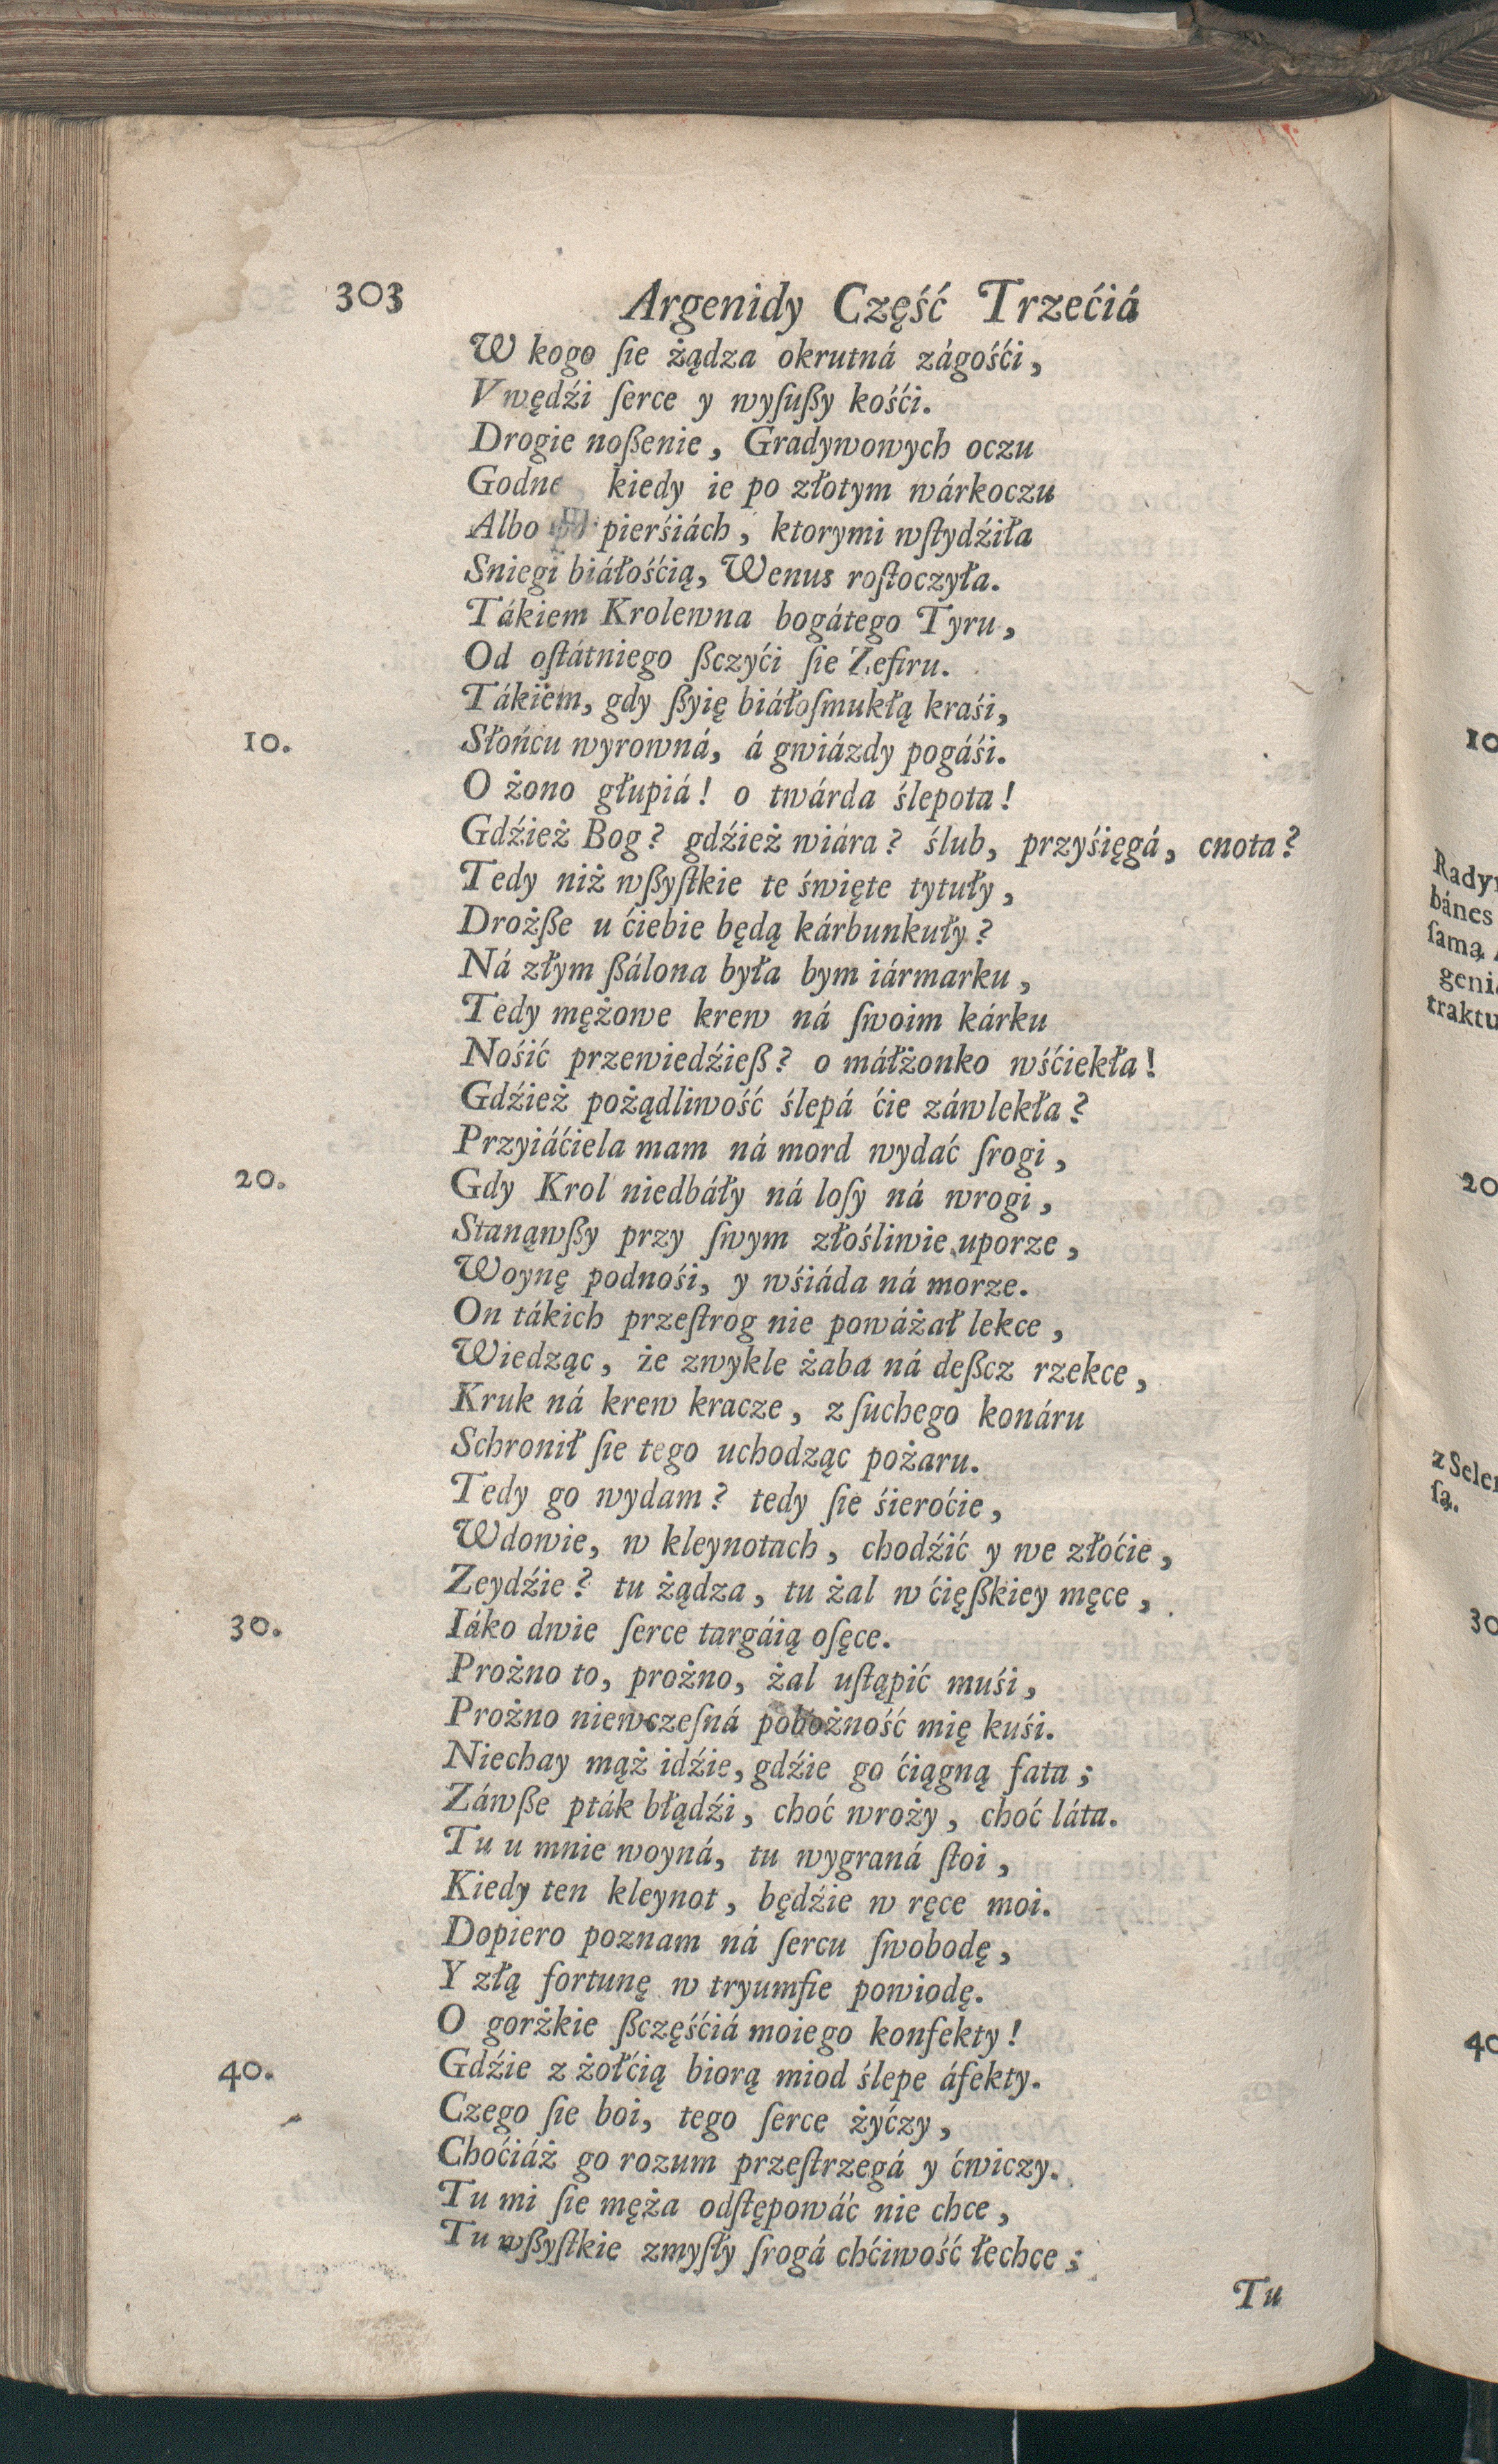 303 Argenidy Część Trzećiá
W kogo ſie żądza okrutná zágośći,
Vwędźi ſerce y wyſußy kośći.
Drogie noßenie, Gradywowych oczu
Godne kiedy ie po złotym wárkoczu
Albo po pierśiách, ktorymi wſtydźiła
Sniegi biáłośćią, Wenus roſtoczyła.
Tákiem Krolewna bogátego Tyru,
Od oſtátniego ßczyći ſie Zefiru.
Tákiem, gdy ßyię biáłoſmukłą kraśi,
10. Słońcu wyrowná, á gwiázdy pogáśi.
O żono głupiá! o twárda ślepota!
Gdźież Bog? gdźież wiára? ślub, przyśięgá, cnota?
Tedy niż wßyſtkie te święte tytuły,
Drożße u ćiebie będą kárbunkuły?
Ná złym ßálona była bym iármarku,
Tedy mężowe krew ná ſwoim kárku
Nośić przewiedźieß? o máłżonko wśćiekła!
Gdźież pożądliwość ślepá ćie záwlekła?
Przyiáćiela mam ná mord wydać ſrogi,
20. Gdy Krol niedbáły ná loſy ná wrogi,
Stanąwßy przy ſwym złośliwie uporze,
Woynę podnośi, y wśiáda ná morze.
On tákich przeſtrog nie poważał lekce,
Wiedząc, że zwykle żaba ná deßcz rzekce,
Kruk ná krew kracze, z ſuchego konáru
Schronił ſie tego uchodząc pożaru.
Tedy go wydam? tedy ſie śieroćie,
Wdowie, w kleynotach, chodźić y we złoćie,
Zeydźie? tu żądza, tu żal w ćięßkiey męce,
30. Iáko dwie ſerce targáią oſęce.
Prożno to, prożno, żal uſtąpić muśi,
Prożno niewczeſná pobożność mię kuśi.
Niechay mąż idźie, gdźie go ćiągną fata;
Záwße pták błądźi, choć wroży, choć láta.
Tu u mnie woyná, tu wygraná ſtoi,
Kiedy ten kleynot, będźie w ręce moi.
Dopiero poznam ná ſercu ſwobodę,
Y złą fortunę w tryumfie powiodę.
O gorżkie ßczęśćiá moiego konfekty!
40. Gdźie z żołćią biorą miod ślepe áfekty.
Czego ſie boi, tego ſerce żyćzy,
Choćiáż go rozum przeſtrzegá y ćwiczy.
Tu mi ſie męża odſtępowáć nie chce,
Tu wßyſtkie zmyſły ſrogá chćiwość łechce;
Tu
10
Rady
bánes
ſamą
geni
traktu
20
z Sele
ſą.
30
40